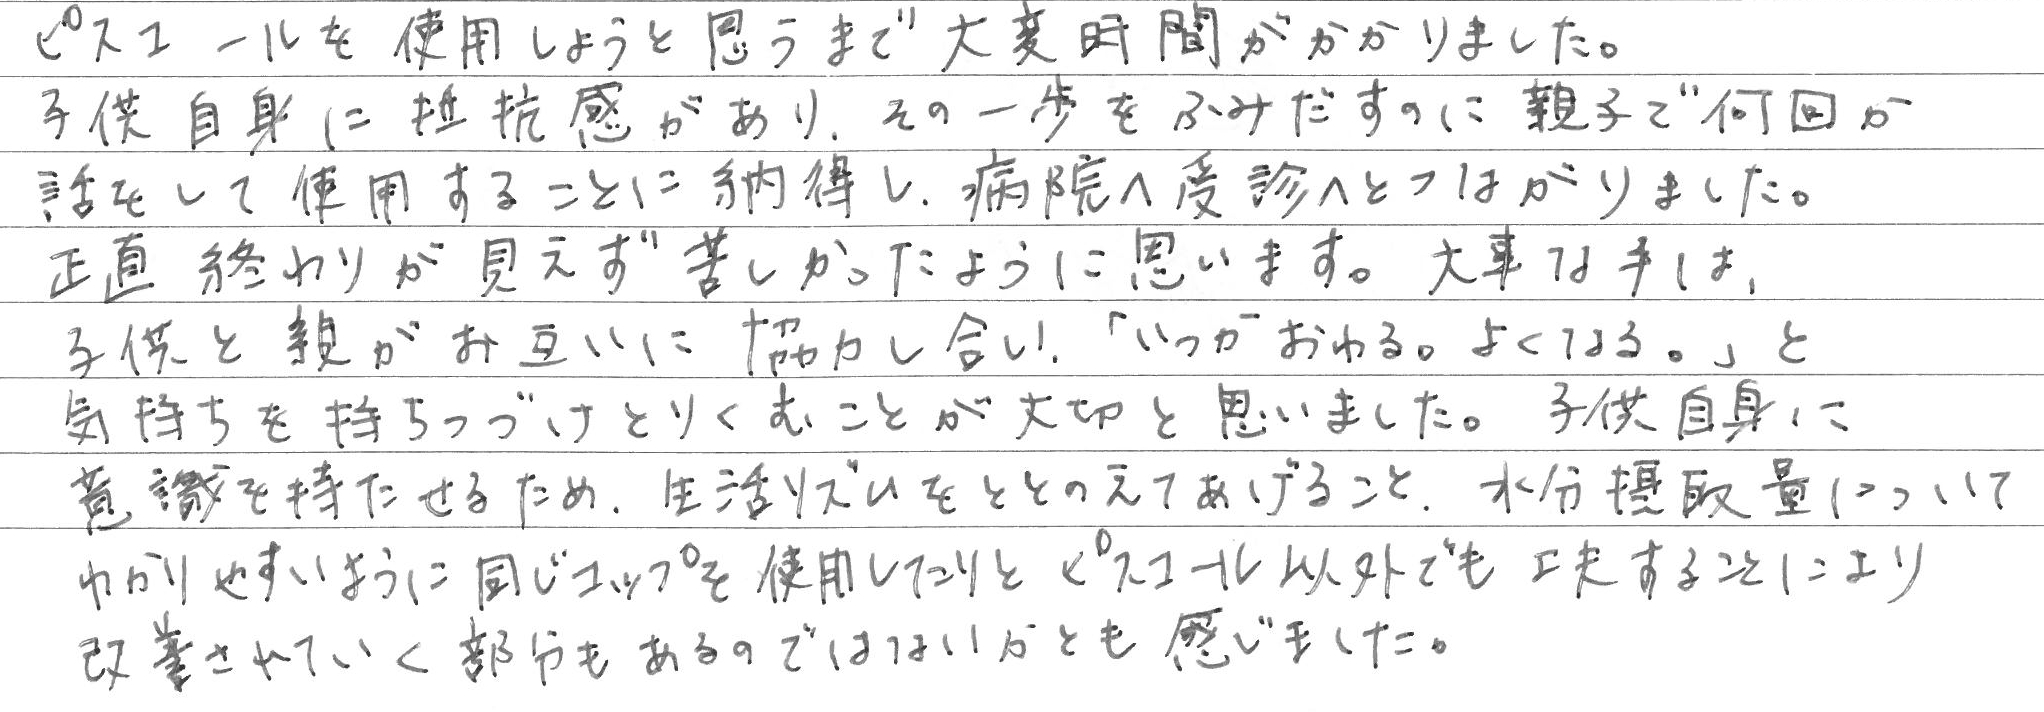 ピスコールを使用しようと思うまで大変時間がかかりました。
子供自身に抵抗感があり、その一歩をふみだすのに親子で何回か
話をして使用することに納得し、病院へ受診へとつながりました。
正直終わりが見えず苦しかったように思います。大事な事は、
子供と親がお互いに協力し合い、「いつかおわる。よくなる。」と
気持ちを持ちつづけとりくむことが大切と思いました。子供自身に
意識を持たせるため、生活リズムをととのえてあげること、水分摂取量について
わかりやすいように同じコップを使用したりとピスコール以外でも工夫することにより
改善されていく部分もあるのではないかとも感じました。